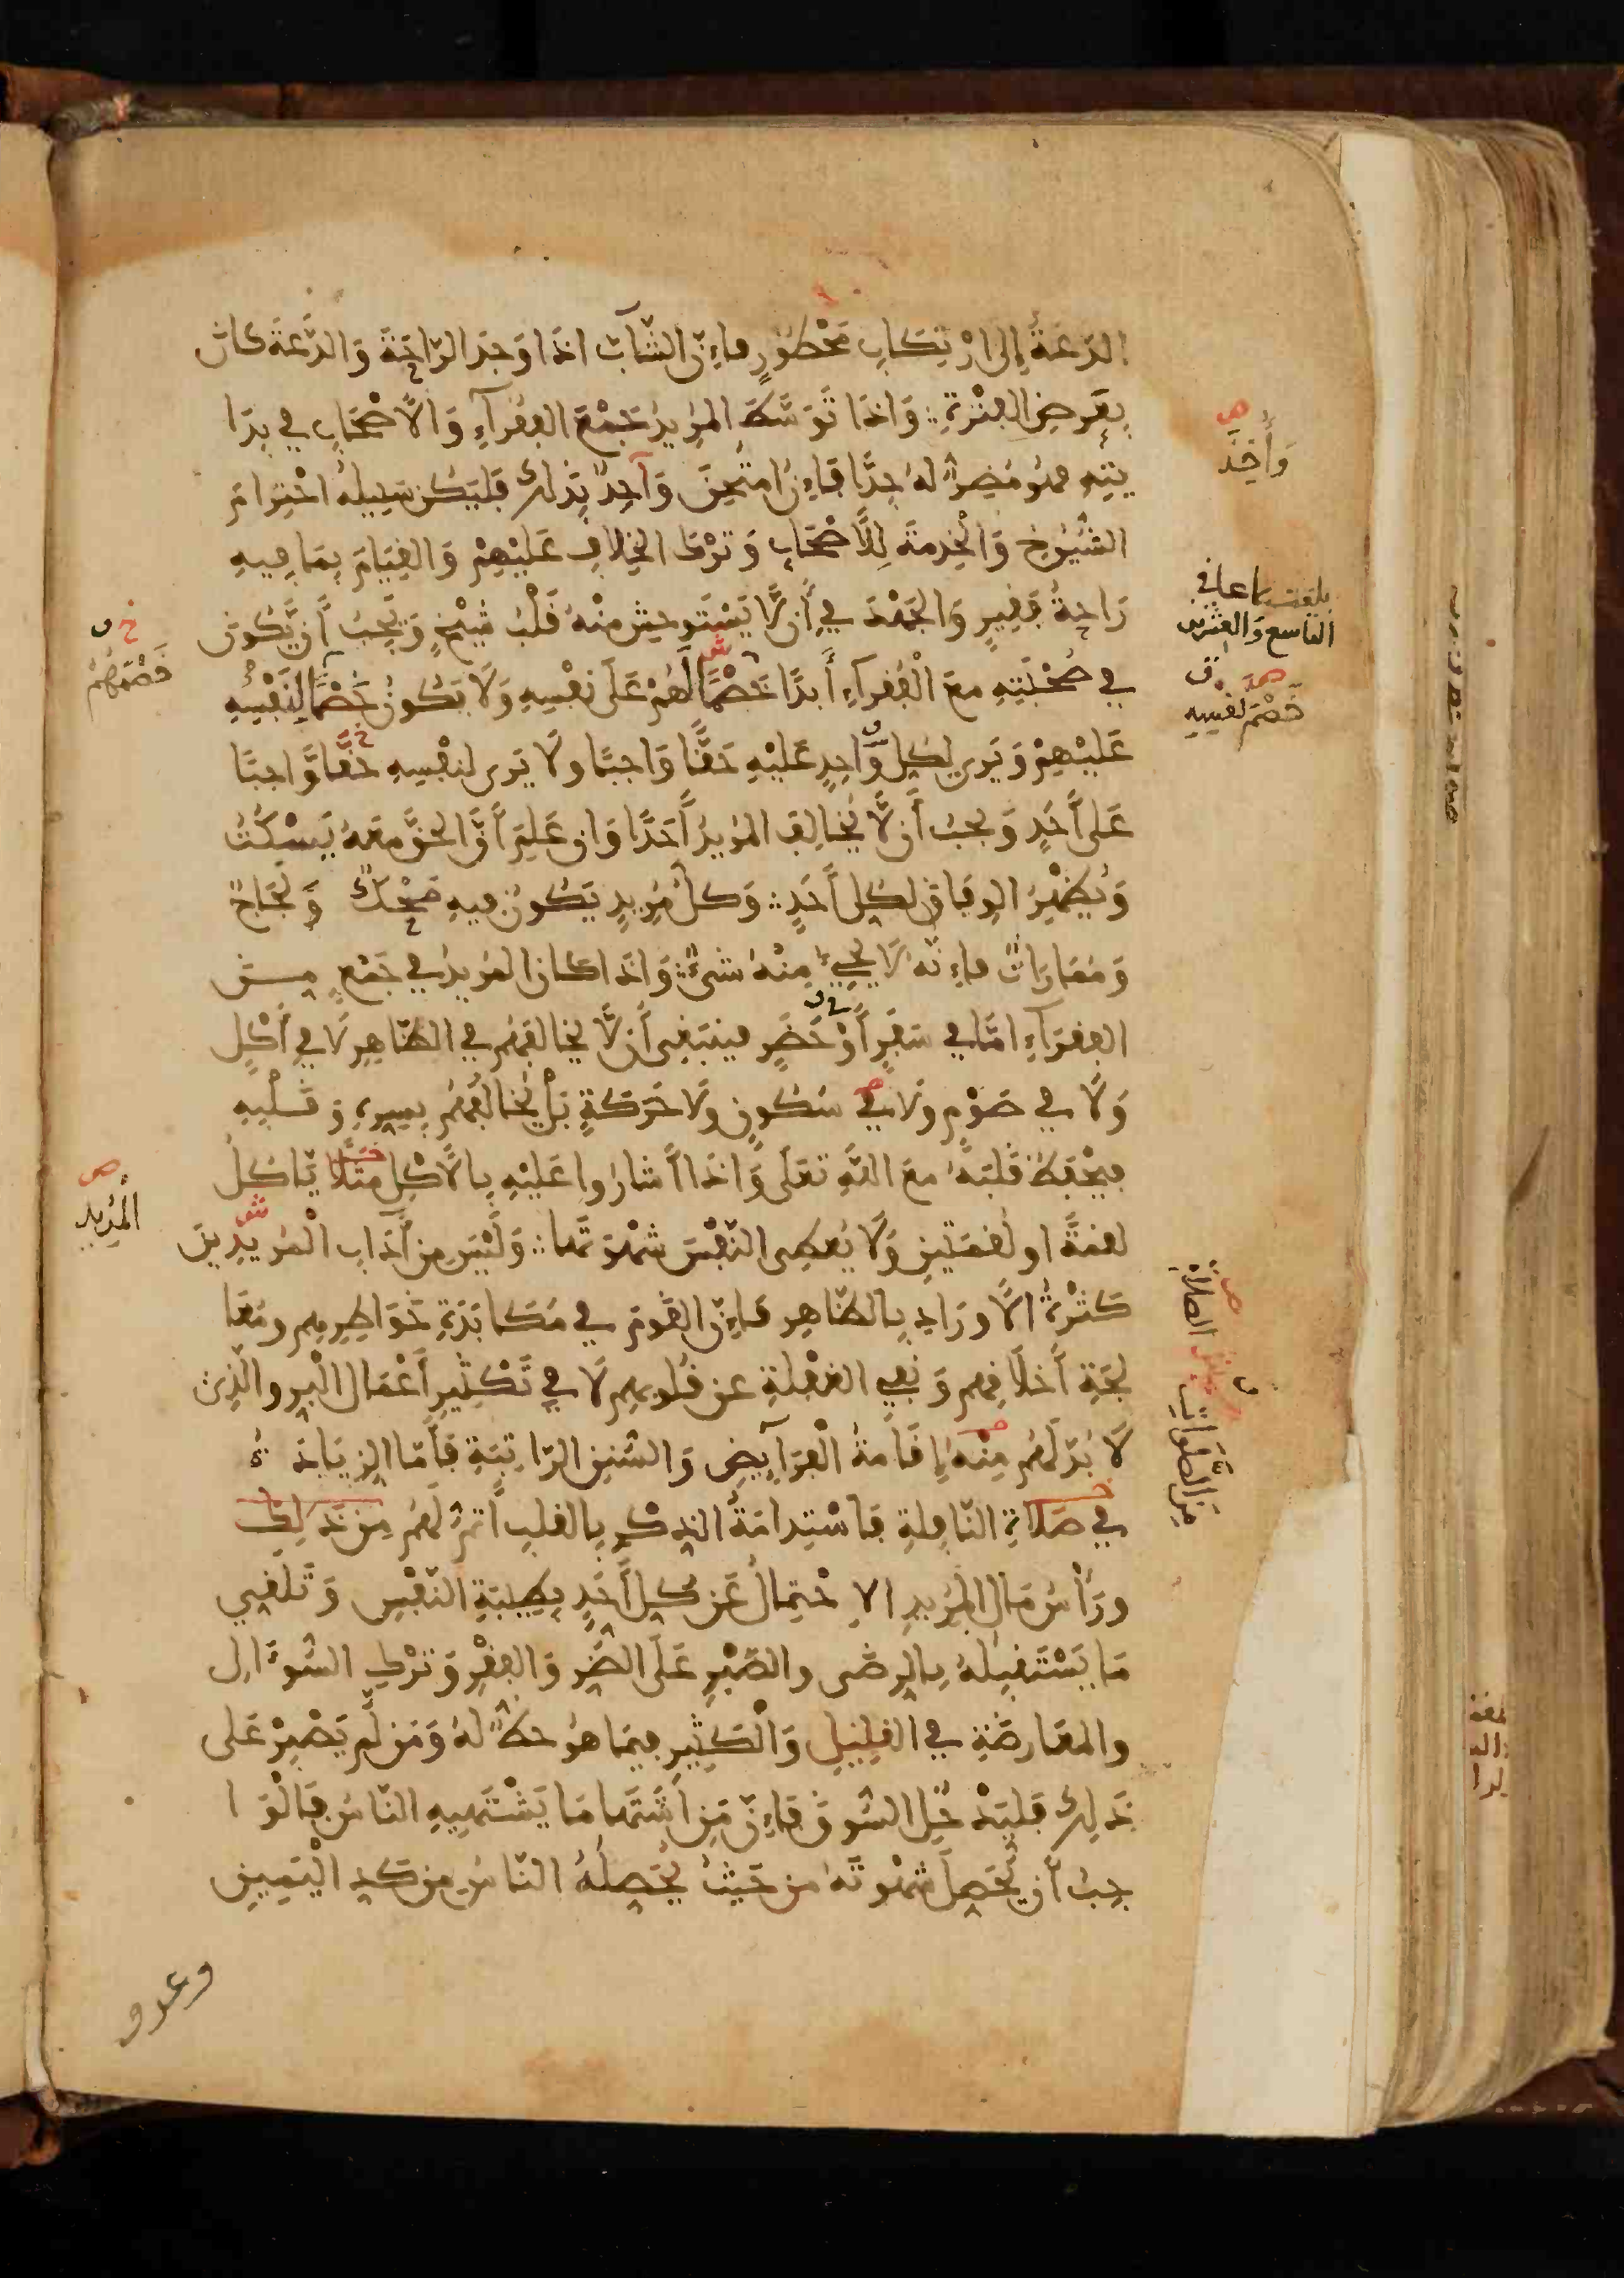 الدَّعَةُ إِلَى ارْتِكَابِ مَحْظُورٍ فإِنّ الشَّابَّ اذَا وَجَدَ الرّاحَةَ وَالدَّعَةَ كان
بِعَرَضِ الفِتْرَةِ وَاذَا تَوَسَّطَ المُرِيدُ جَمْعَ الفُقَرَآءِ وَالْأَصْحَابِ في بِدَا
يَتِهِ فهُوَ مُضِرٌّ لهُ جِدًّا فَإِنُ امْتُحِنَ وَاحِدٌ بِذَلِكَ فَلْيَكُن سَبِيلُهُ احْتِرَامَ
الشُّيُوخِ وَالْخِدمَةَ لِلْأَصْحَابِ وَتَرْكَ الخِلافِ عَلَيْهِمْ وَالقِيَامَ بِمَا فِيهِ
رَاحَةُ فَقِيرٍ وَالجَهْدَ فِي أَن لَّا يَسْتَوحِشَ مِنْهُ قَلْبُ شَيْخٍ وَيَجِبُ أَن يَّكُونَ
في صُحْبَتِهِ مَعَ الْفُقرَآءِ أَبدًا خَصْمًا لَهُمْ عَلَى نَفْسِهِ وَلَا يَكُونُ خَصْمًا لِنَفْسِهِ
عَلَيْهِمْ وَيَرى لِكُلِّ وَاحِدٍ عَلَيْهِ حَقًّا وَاجبًا ولَا يَرى لنفْسِهِ حَقًّا وَّاجبًا
عَلَى أَحَدٍ وَيجبُ أَن لَّا يُخَالِفَ المُرِيدُ أَحَدًا وَان عَلِمَ أَنَّ الحَقَّ مَعَهُ يَسْكُتُ
وَيُظْهِرُ الوِفَاقَ لِكُلِّ أَحَدٍ وَكلُّ مُرِيدٍ يَكُونُ فِيهِ ضَحْكٌ وَلَجَاجٌ
وَمُمَارَاتٌ فإِنَّهُ لَا يَجِيءُ مِنْهُ شَىْءٌ وَاذَا كَانَ المُرِيدُ في جَمْعٍ مِنَ
الفُقَرَآءِ امَّا في سَفَرٍ أَوْ حَضَرٍ فينبَغِى أَن لَّا يُخَالِفَهُم في الظَّاهِرِ لَا فِي أَكْلٍ
وَلَا في صَوْمٍ ولَا فِي سُكُونٍ ولَا حَرَكَةٍ بَلْ يُخَالِفُهُمْ بِسِرِّهِ وَقَلْبِهِ
فيَحْفَظُ قَلبَهُ مَعَ اللهِ تَعَلَى وَاذَا أَشَارُوا عَلَيْهِ بِالْأَكْلِ مَثَلًا يَّاكُلُ
لقمَةً او لُقمَتَيْنِ وَلَا يُعطِى النَّفْسَ شَهْوَتَهَا وَلَيْسَ مِنَ آدَابِ الْمُرِيدِينَ
كَثْرَةُ الْأَورَادِ بِالظَّاهِرِ فَإِنَّ القَوْمَ في مُكَابَدَةِ خَوَاطِرِهِم ومُعَا
لَجَةِ أَخْلَاقِهِم وَنَفْيِ الغَفْلَةِ عَن قُلُوبِهِم لَا فِي تَكْثِيرِ أَعْمَالِ الْبِرِّ والَّذِى
لَا بُدَّ لَهُمْ مِنْهُ إِقَامَةُ الْفَرَآيِضِ وَالسُّنَنِ الرَّاتِبَةِ فَأَمَّا الزِّيَادَةُ
في صَلَاةِ النَّافِلَةِ فَاسْتِدَامَةُ الذِكْرِ بِالقَلبِ أَتَمُّ لَهُمْ مِن ذَلِكَ
ورَأْسُ مَالِ المُرِيدِ الاِحْتِمَالُ عَن كُلِّ أَحَدٍ بِطِيبَةِ النَّفْسِ وَتَلَقِّي
مَا يَسْتَقْبِلُهُ بِالرِّضَى والصَّبْرِ عَلَى الضُّرِّ وَالفَقْرِ وَتَرْكِ السُّؤَالِ
والمُعَارضَةِ في القَلِيلِ وَالْكَثِيرِ فِيمَا هُوَ حَظٌّ لَهُ وَمَن لَّمْ يَصْبِرْ عَلَى
ذَلِكَ فَليَدْخُلِ السُّوقَ فَإِنَّ مَنِ اشْتَهَا مَا يَشْتَهِيهِ النَّاسُ فَالْوَا
جِبُ أَن يُّحَصِّلَ شَهْوَتَهُ مِن حَيْثُ يُحَصِّلُهُ النَّاسُ مِن كَدِّ الْيَمِينِ
وعرق
وَأُخِذَ
بلغت سماعا في
التاسع وَالعشرين
خَصْمَ نَفْسِهِ
خَصْمَهُمْ
المُرِيد
مِنَ الصَّلَوَاتِ